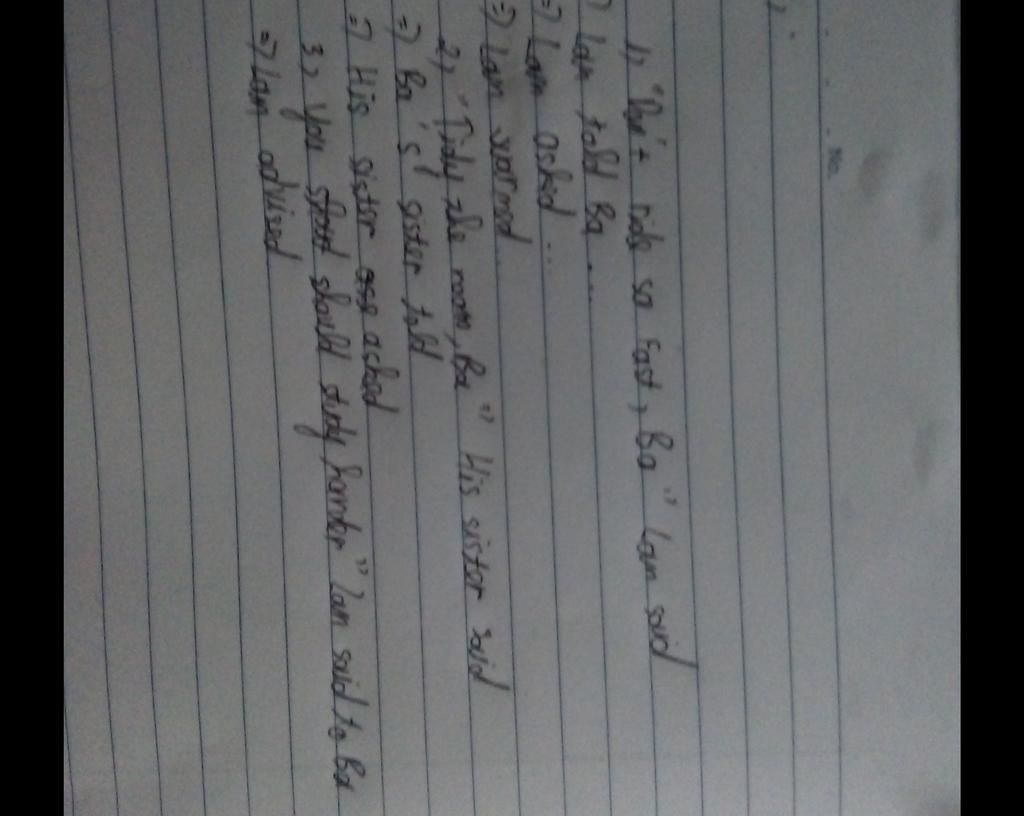 No.
1, "Don't ride so fast, Ba" Lam said
Lam told Ba.....
=) Lam asked ...
=) Lam warned...
2, "Tidy the room, Ba" His sister said
=) Ba's sister told
=) His sister asked
3, You should study harder" Lam said to Ba
=) Lam advised